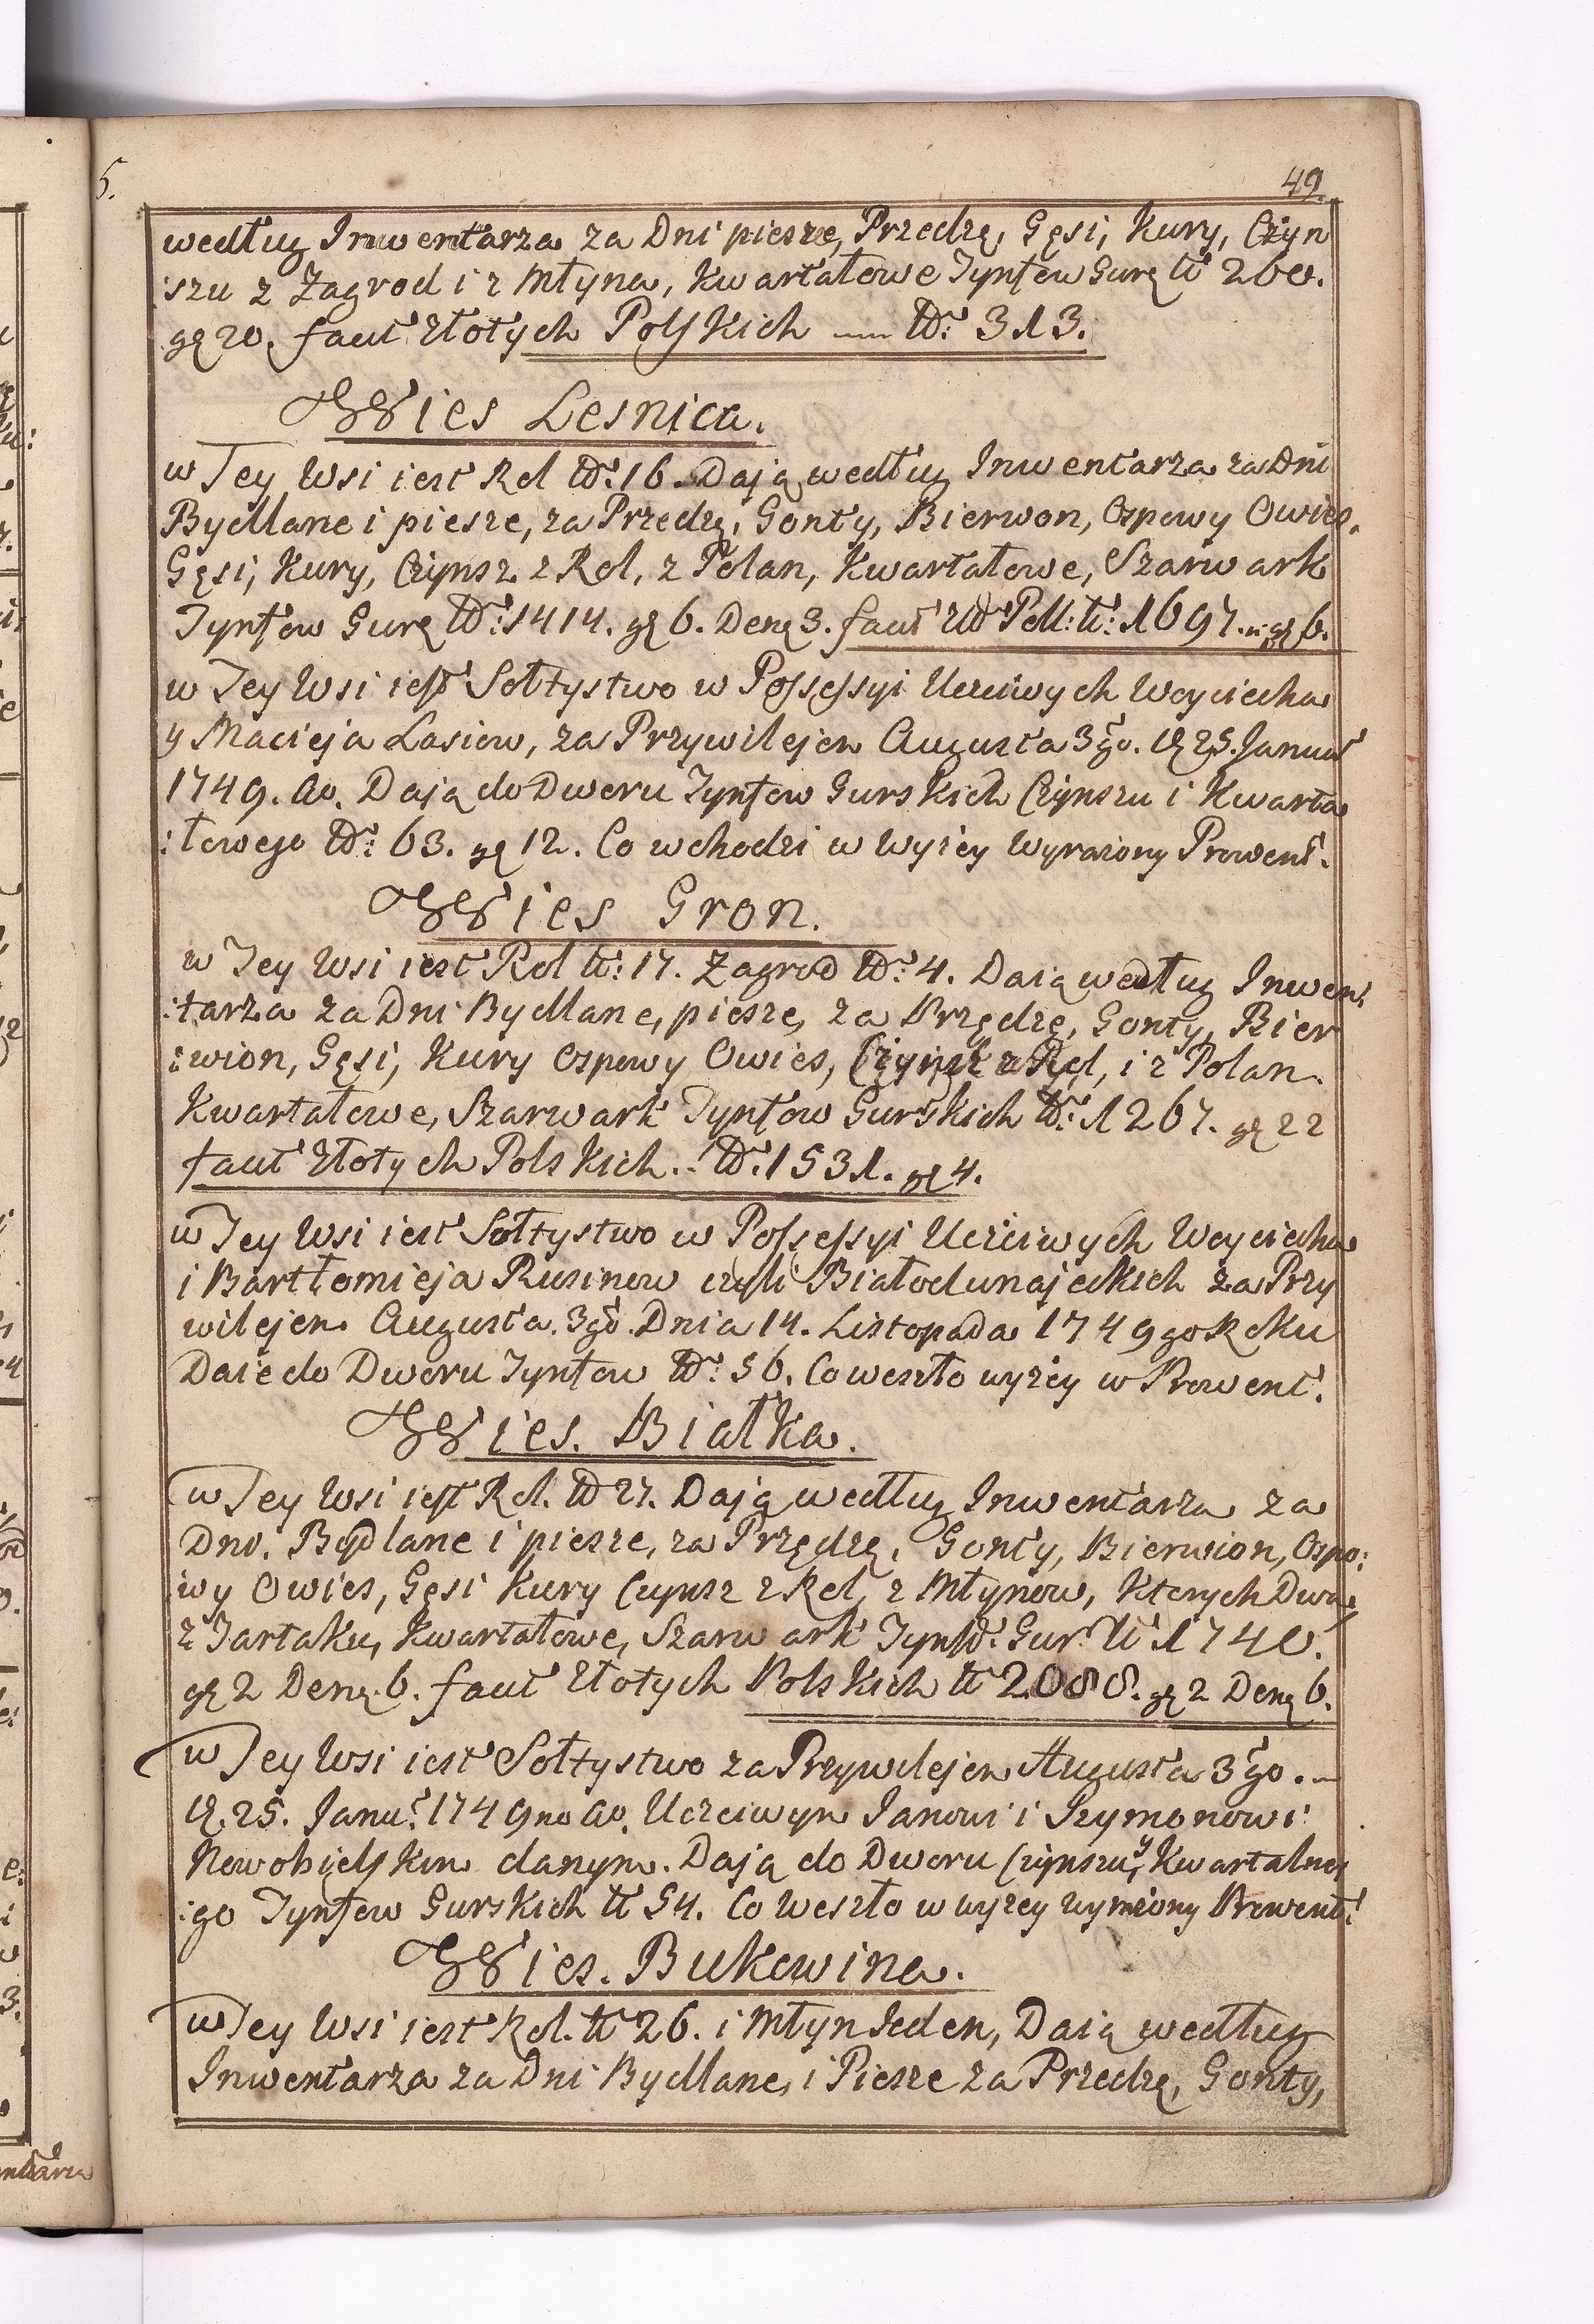 5.
49.
według Inwentarza za Dni piesze, Przedzę, Gęsi, Kury, Czyn
:szu z Zagrod i z Młyna, Kwartałowe Tynfow Gurę tt 260.
gę 20. facit Złotych Polskich — No: 313.
Wies Lesnica.
w Tey Wsi iest Rol No: 16. Dają według Inwentarza za Dni
Bydlane i piesze, za Przedzę, Gonty, Bierwon, Ospowy Owies,
Gęsi, Kury, Czynsz z Rol, z Polan, Kwartałowe, Szarwark
Tynfow Gurę No: 1414. gę 6. Denę 3. facit Poll: tt: 1697. gę 6.
w Tey Wsi iest Sołtystwo w Possessyi Uczciwych Woyciecha
y Macieja Lasiow, za Przywilejem Augusta 3go. 25. Januar
1749. ao. Dają do Dworu Tynfow Gurskich Czynszu i Kwarta
:łowego No: 63. gę 12. Co wchodzi w Wyżey Wyrażony Prowent.
Wies Gron.
w Tey Wsi iest Rol tt: 17. Zagrod No: 4. Daią według Inwen:
:tarza za Dni Bydlane, piesze, za Przędzę, Gonty, Bier
:wion, Gęsi, Kury Ospowy Owies, Czynsz z Rol, i z Polan.
Kwartałowe, Szarwark Tynfow Gurskich No: 1267. gę 22
facit Złotych Polskich. No: 1531. gę 4.
w Tey Wsi iest Sołtystwo w Possessyi Uczciwych Woyciecha
i Bartłomieja Rusinow czyli Białodunajeckich za Przy
wilejem Augusta. 3go. Dnia 14. Listopada 1749 go Roku
Daie do Dworu Tynfow No: 56. Co weszło wyżey w Prowent.
Wies. Białka.
w Tey Wsi iest Rol. No 27. Dają według Inwentarza za
Dno. Bydlane i piesze, za Przędzę, Gonty, Bierwion, Ospo:
:wy Owies, Gęsi Kury Czynsz z Rol, z Młynow, Ktorych Dwa,
z Tartaku, Kwartałowe, Szarwark Tynfw. Gur. tt 1740.
gę 2 Denę. 6. facit Złotych Polskich tt 2088. gę 2 Denę 6.
w Tey Wsi iest Sołtystwo za Przywilejem Augusta 3go.
25. Janu: 1749 no ao. Uczciwym Janowi i Szymonowi
Nowobielskim danym. Dają do Dworu Czynszu, y Kwartalne
:go Tynfow Gurskich tt 54. Co Weszło w wyżey wyrażony Prowent:
Wies. Bukowina.
w Tey Wsi iest Rol. tt 26. i Młyn Jeden, Daią według
Inwentarza za Dni Bydlane, i Piesze za Przedzę, Gonty,